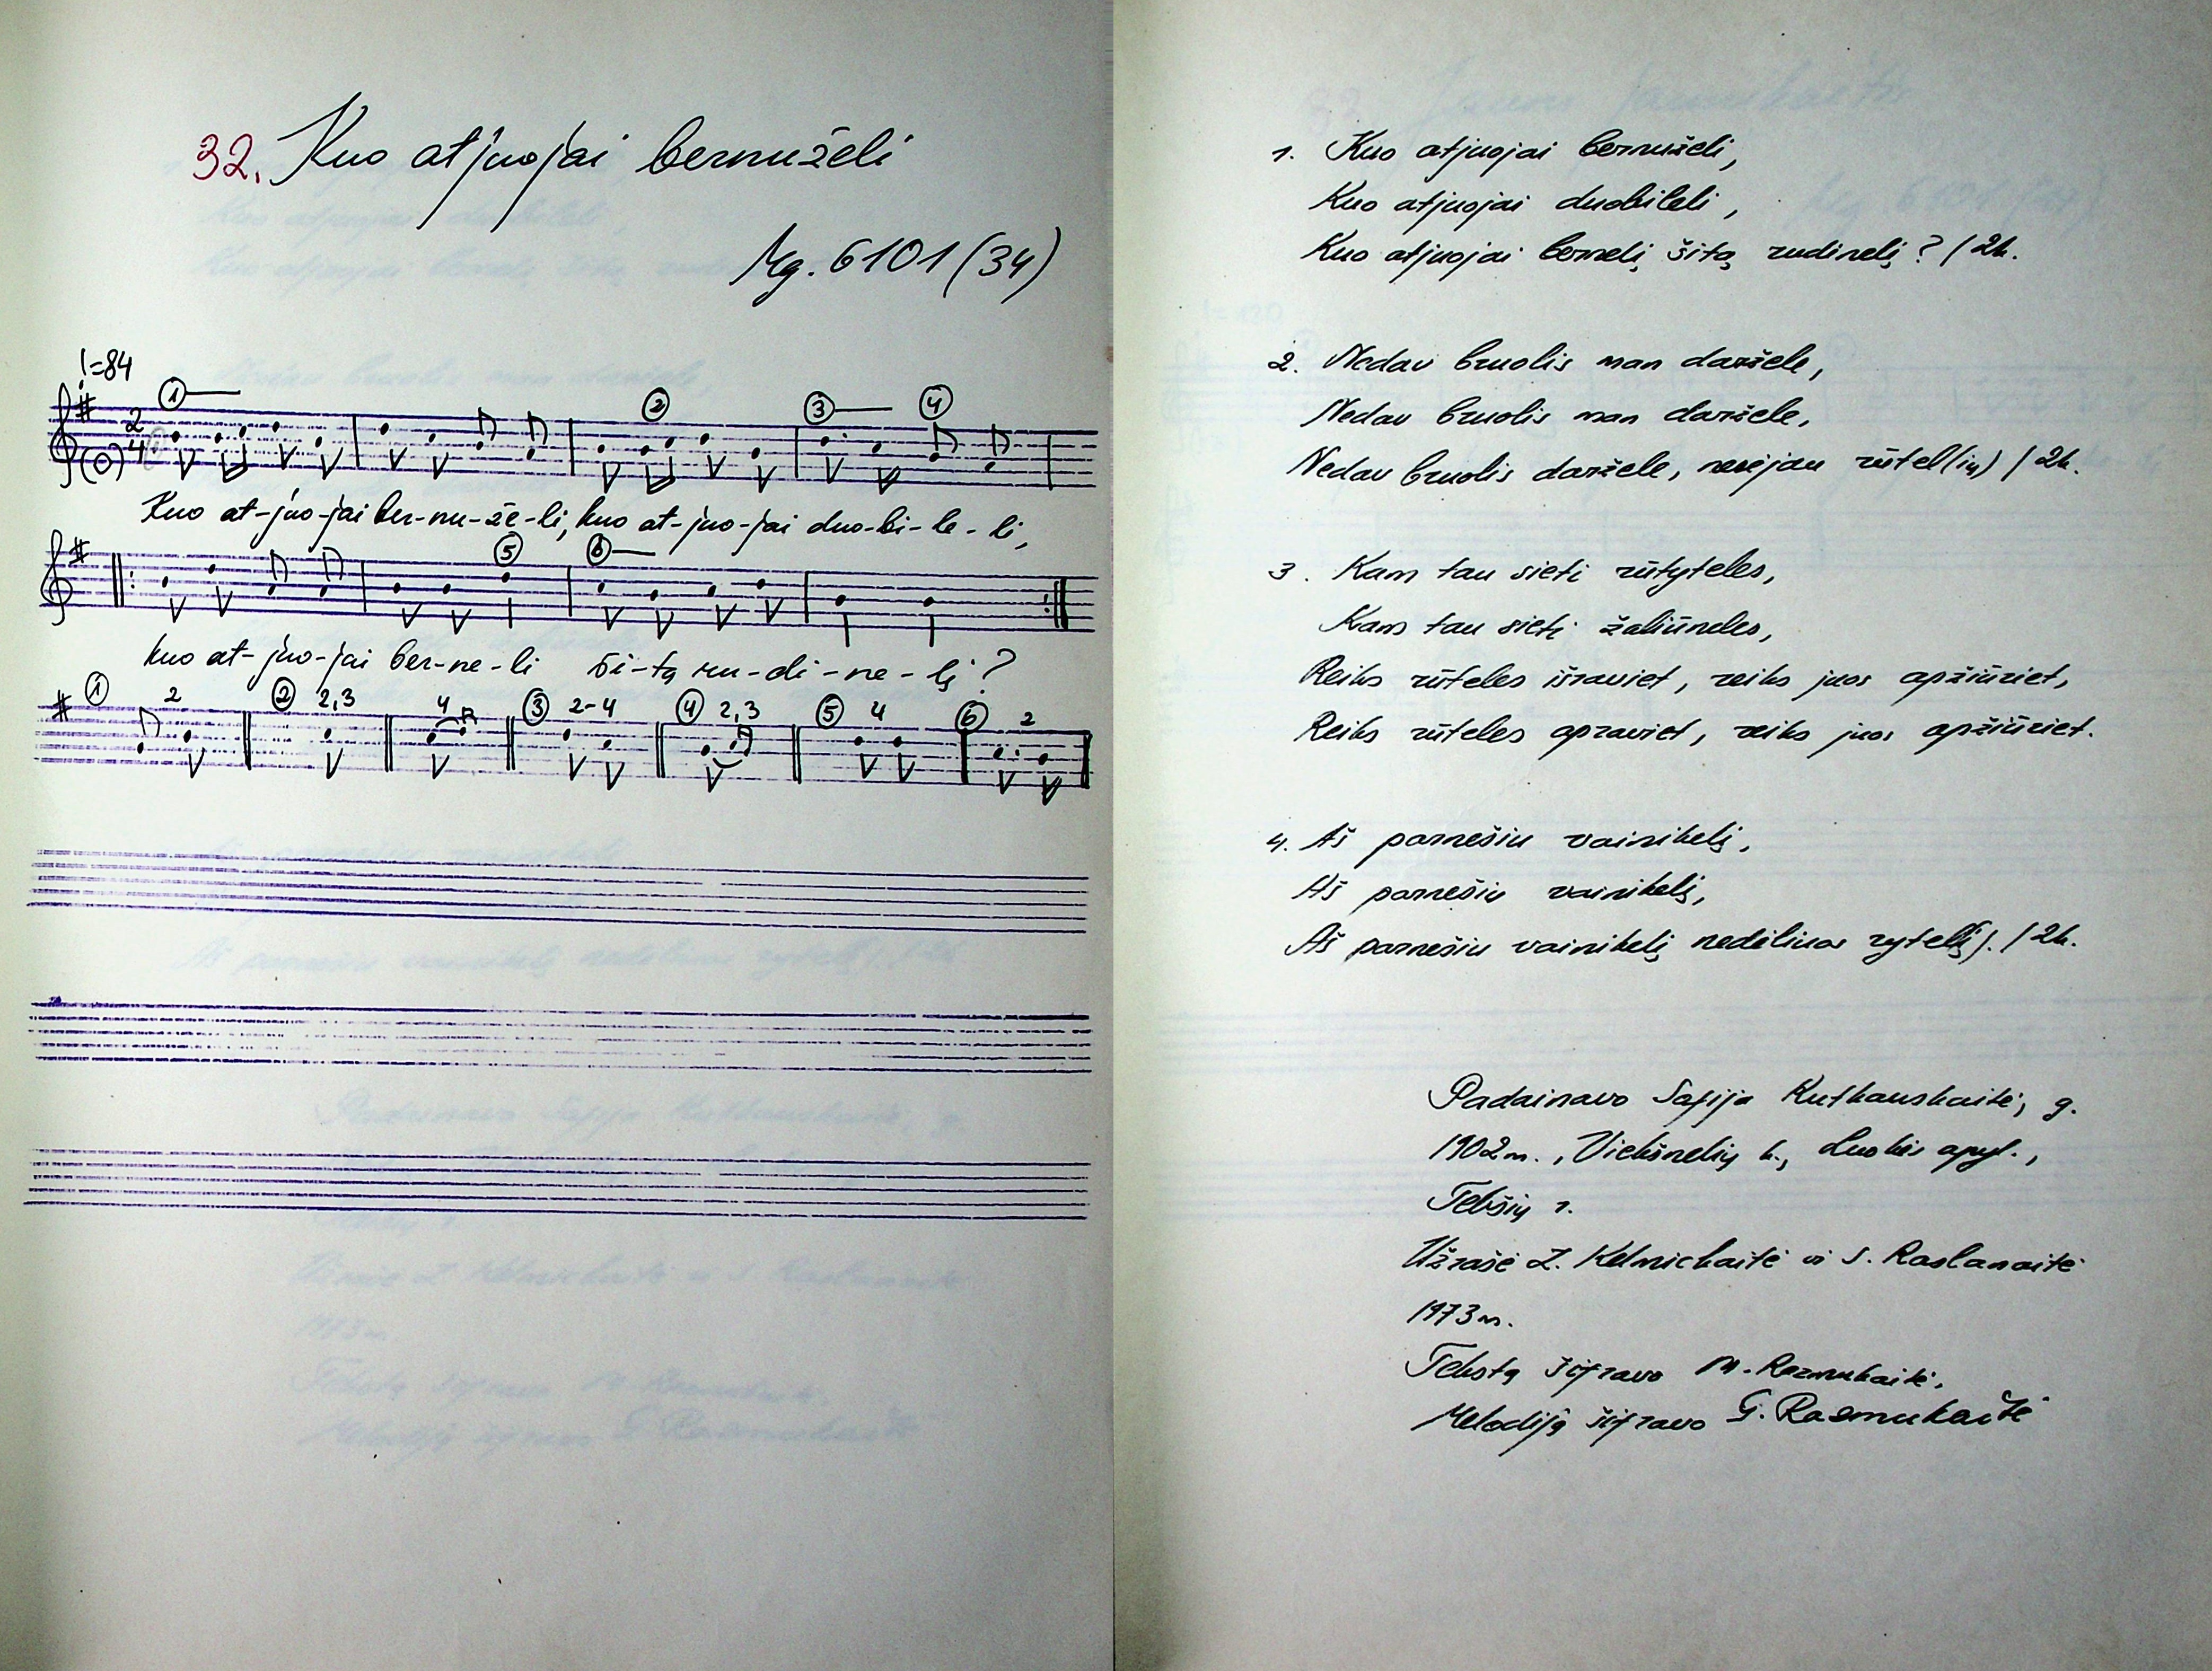 32. Kuo atjuojai bernuželi
Mg. 6101 (34)
♩=84
① ② ③ ④
2
4
(O)
Kuo at-juo-jai ber-nu-že-li, kuo at-juo-jai duo-bi-le-li,
⑤ ⑥
kuo at-juo-jai ber-ne-li ši-tą ru-di-ne-lį?
① 2 ② 2,3 4 ③ 2-4 ④ 2,3 ⑤ 4 ⑥ 2
1. Kuo atjuojai bernuželi,
Kuo atjuojai duobileli,
Kuo atjuojai bernelį šitą rudinelį? / 2k.
2. Nedav bruolis man daržele,
Nedav bruolis man daržele,
Nedav bruolis daržele, nesėjau rūtel(iu) / 2k.
3. Kam tau sieti rūtyteles,
Kam tau sieti žaliūneles,
Reiks rūteles išraviet, reiks juos apžiūriet,
Reiks rūteles apraviet, reiks juos apžiūriet.
4. Aš parnešiu vainikelį,
Aš parnešiu vainikelį,
Aš parnešiu vainikelį nedėliuos rytelį). / 2k.
Padainavo Sofija Kutkauskaitė, g.
1902 m., Viekšnelių k., Luokės apyl.,
Telšių r.
Užrašė L. Kelmickaitė ir S. Raslanaitė
1973 m.
Tekstą šifravo M. Razmukaitė,
Melodiją šifravo G. Razmukaitė